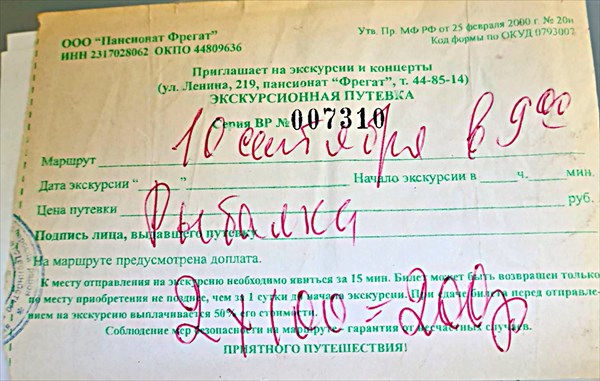 ООО "Пансионат Фрегат"
ИНН 2317028062 ОКПО 44809636
Утв. Пр. МФ РФ от 25 февраля 2000 г. № 20н
Код формы по ОКУД 0793002
Приглашает на экскурсии и концерты
(ул. Ленина, 219, пансионат "Фрегат", т. 44-85-14)
ЭКСКУРСИОННАЯ ПУТЕВКА
Серия ВР № 007310
10 сентября в 9 00
Маршрут
Дата экскурсии " " Начало экскурсии в ч. мин.
Цена путевки руб.
Рыбалка
Подпись лица, выдавшего путевку
На маршруте предусмотрена доплата.
К месту отправления на экскурсию необходимо явиться за 15 мин. Билет может быть возвращен только
по месту приобретения не позднее, чем за 1 сутки до начала экскурсии. При сдаче билета перед отправле-
нием на экскурсию выплачивается 50% его стоимости.
2 х 100 = 200 р
Соблюдение мер безопасности на маршруте - гарантия от несчастных случаев.
ПРИЯТНОГО ПУТЕШЕСТВИЯ!